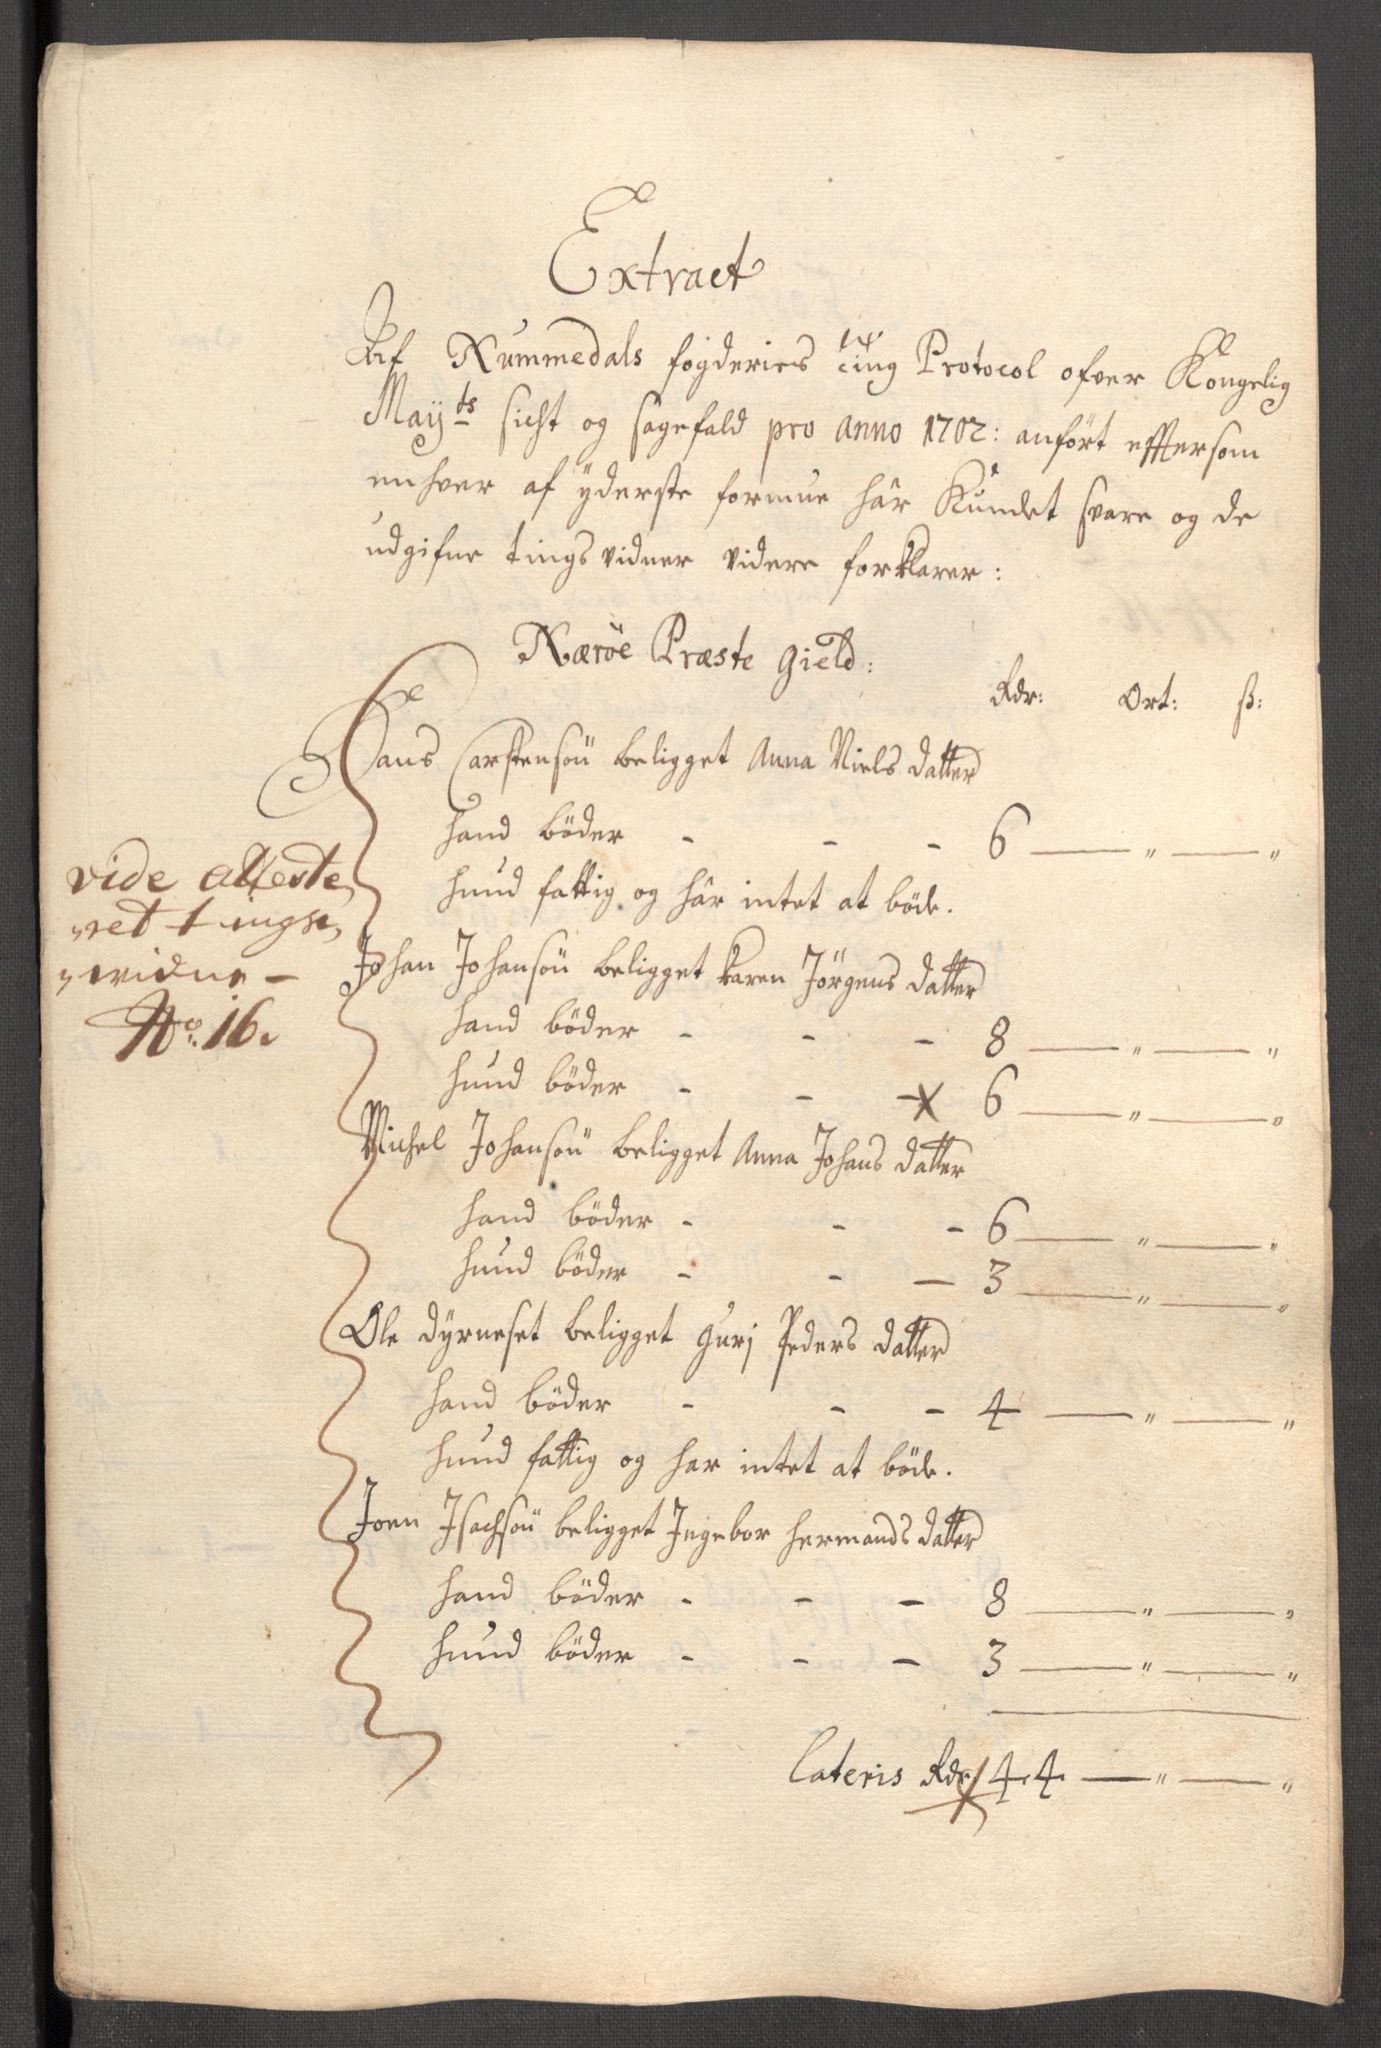 Extract
Af Nummedals fogderies ting Protocol ofver Kongelig
Mayts sicht og sagefald pro anno 1702: anført effter som
en hver af yderste formue här Kundet svare og de
udgifne tings vidner videre forklarer:
Nærøe Præste gield:
Rdr: Ort: ß:
Hans Carstensøn beligget Anna Niels datter
hand böder - - - 6 — " — "
hund fattig og här intet at böde.
vide atteste
"ret tings
"vidne -
No. 16.
Johan Johansøn beligget Karen Jörgens datter
hand böder - - - 8 — " — "
hund böder - - - 6 — " — "
Michel Johansøn beligget Anna Johans datter
hand böder - - - 6 — " — "
hund böder - - - 3 — " — "
Ole dyrneset beligget gurj Peders datter
hand böder - - - 4 — " — "
hund fattig og har intet at böde.
Joen Jsachsøn beligget Jngebor hermands datter
hand böder - - - 8 — " — "
hund böder - - - 3 — " — "
Lateris Rdr 44 — " — "